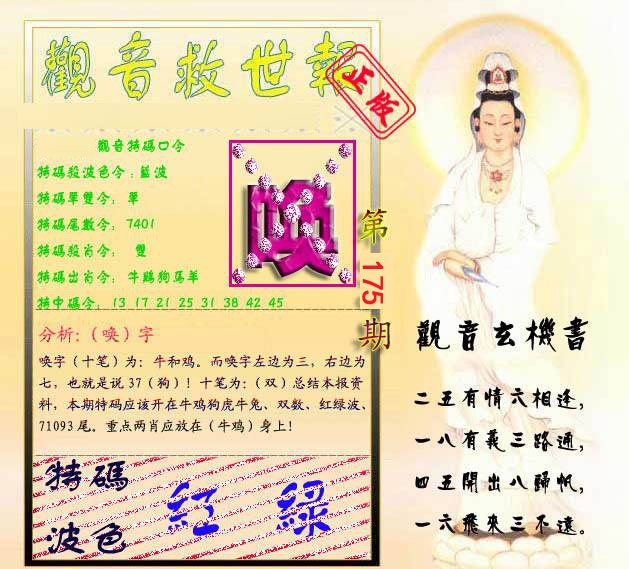 觀音救世報
正版
觀音特碼口令
特碼殺波色令:藍波
特碼單雙令: 單
特碼尾數令: 7401
特碼殺肖令: 雙
特碼出肖令: 牛鷄狗馬羊
特中碼令: 13 17 21 25 31 38 42 45
喚
第175期
分析:（唤）字
唤字（十笔）为: 牛和鸡。而唤字左边为三，右边为
七，也就是说 37（狗）! 十笔为:（双）总结本报资
料，本期特码应该开在牛鸡狗虎牛兔、双数、红绿波、
71093 尾。重点两肖应放在（牛鸡）身上!
特碼
波色
紅 綠
觀音玄機書
二五有情六相逢，
一八有義三路通，
四五開出八歸帆，
一六飛來三不遠。